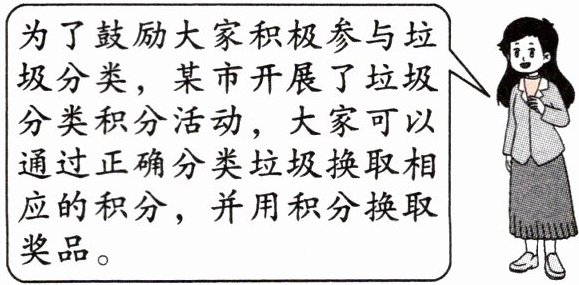 为了鼓励大家积极参与垃
圾分类，某市开展了垃圾
分类积分活动，大家可以
通过正确分类垃圾换取相
应的积分，并用积分换取
奖品。